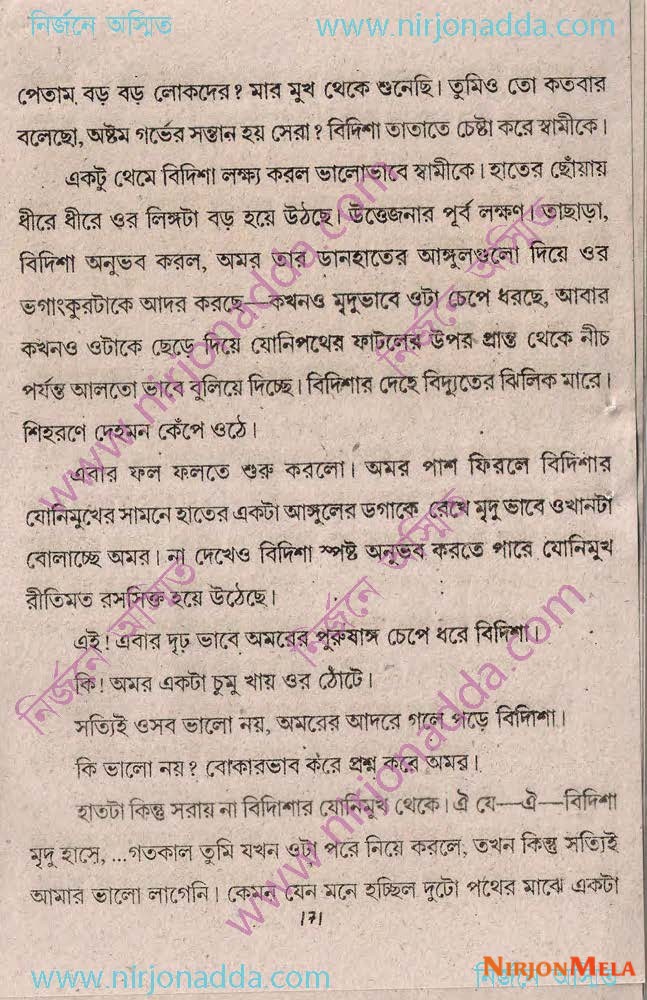 নির্জনে অস্মিত www.nirjonadda.com
পেতাম বড় বড় লোকদের? মার মুখ থেকে শুনেছি। তুমিও তো কতবার
বলেছো, অষ্টম গর্ভের সন্তান হয় সেরা? বিদিশা তাতাতে চেষ্টা করে স্বামীকে।
একটু থেমে বিদিশা লক্ষ্য করল ভালোভাবে স্বামীকে। হাতের ছোঁয়ায়
ধীরে ধীরে ওর লিঙ্গটা বড় হয়ে উঠছে। উত্তেজনার পূর্ব লক্ষণ। তাছাড়া,
বিদিশা অনুভব করল, অমর তার ডানহাতের আঙ্গুলগুলো দিয়ে ওর
ভগাংকুরটাকে আদর করছে—কখনও মৃদুভাবে ওটা চেপে ধরছে, আবার
কখনও ওটাকে ছেড়ে দিয়ে যোনিপথের ফাটলের উপর প্রান্ত থেকে নীচ
পর্যন্ত আলতো ভাবে বুলিয়ে দিচ্ছে। বিদিশার দেহে বিদ্যুতের ঝিলিক মারে।
শিহরণে দেহমন কেঁপে ওঠে।
এবার ফল ফলতে শুরু করলো। অমর পাশ ফিরলে বিদিশার
যোনিমুখের সামনে হাতের একটা আঙ্গুলের ডগাকে রেখে মৃদু ভাবে ওখানটা
বোলাচ্ছে অমর। না দেখেও বিদিশা স্পষ্ট অনুভব করতে পারে যোনিমুখ
রীতিমত রসসিক্ত হয়ে উঠেছে।
এই! এবার দৃঢ় ভাবে অমরের পুরুষাঙ্গ চেপে ধরে বিদিশা।
কি! অমর একটা চুমু খায় ওর ঠোঁটে।
সত্যিই ওসব ভালো নয়, অমরের আদরে গলে পড়ে বিদিশা।
কি ভালো নয়? বোকারভাব করে প্রশ্ন করে অমর।
হাতটা কিন্তু সরায় না বিদিশার যোনিমুখ থেকে। ঐ যে—ঐ—বিদিশা
মৃদু হাসে, ...গতকাল তুমি যখন ওটা পরে নিয়ে করলে, তখন কিন্তু সত্যিই
আমার ভালো লাগেনি। কেমন যেন মনে হচ্ছিল দুটো পথের মাঝে একটা
171
www.nirjonadda.com নির্জনে অস্মিত
NIRJONMELA
www.nirjonadda.com
নির্জনে অস্মিত
নির্জনে অস্মিত
নির্জনে অস্মিত
www.nirjonadda.com